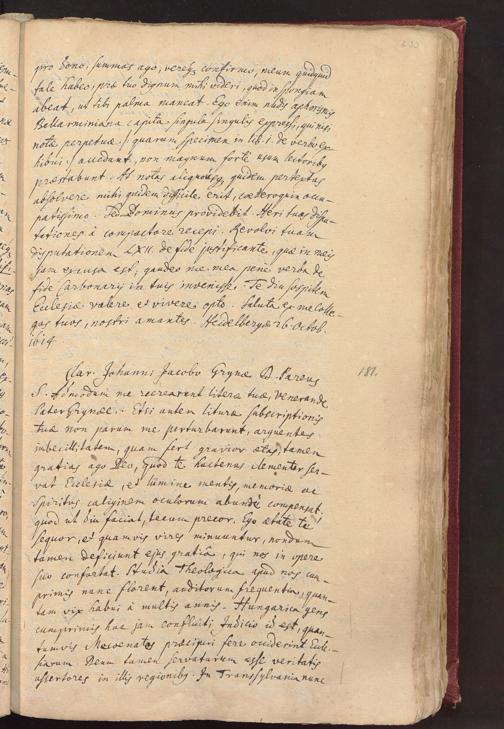 pro dono, summas ago, vereq; confirmo, meum quidquid
tale habeo, prae tuo dignum mihi videri, quod in spongiam
abeat, ut tibi palma maneat. Ego enim nudis aphorismis
Bellarminiana capita singula singulis expressi, qui nisi
notae perpetuae /: quarum specimen in lib. 1. de verbo ex-
hibui :/ accedant, non magnum forte usum lectoribq
praestabunt. At notas aliquousq; quidem pertextas
absolvere mihi quidem difficile erit, caeteroquin occu-
patissimo. Sed Dominus providebit. Heri tuas dispu-
tationes à compactore recepi. Revolvi tuam
disputationem LXII. de fide justificante, quae in meis
jam excusa est, gaudeo me mea penè verba de
fide Carbonaria in tuis invenisse. Te diu sospitem
Ecclesiae valere et vivere opto. Saluta ex me Colle-
gas tuos, nostri amantes. Heidelbergae 26. Octob.
1614.
Clar. Johanni Jacobo Grynaeo D. Pareus 181.
S. Admodum me recrearunt literae tuae, venerande
Pater Grynaee. Etsi autem liturae subscriptionis
tuae non parum me perturbarunt, arguentes
imbecillitatem, quam fert gravior aetas, tamen
gratias ago Deo, quod te hactenus clementer ser-
vat Ecclesiae, et lumine mentis, memoriae ac
Spiritus caliginem oculorum abundè compensat.
quod ut diu faciat, tecum precor. Ego aetate te
sequor, et quamvis vires minuuntur, nondum
tamen deficiunt ejus gratiâ, qui nos in opere
suo confortat. Studia Theologica apud nos cum-
primis nunc florent, auditorum frequentia, quan-
tam vix habui à multis annis. Hungarica gens
cumprimis huc jam confluit: Indicio id est, quan-
tumvis Mecoenates praecipui fere occiderint Eccle-
siarum Deum tamen servaturum esse veritatis
assertores in illis regionibq. In Transsylvania nunc